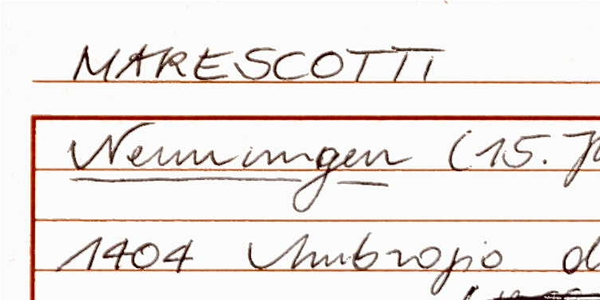 MARESCOTTI
Nennungen (15. J
1404 Ambrogio d